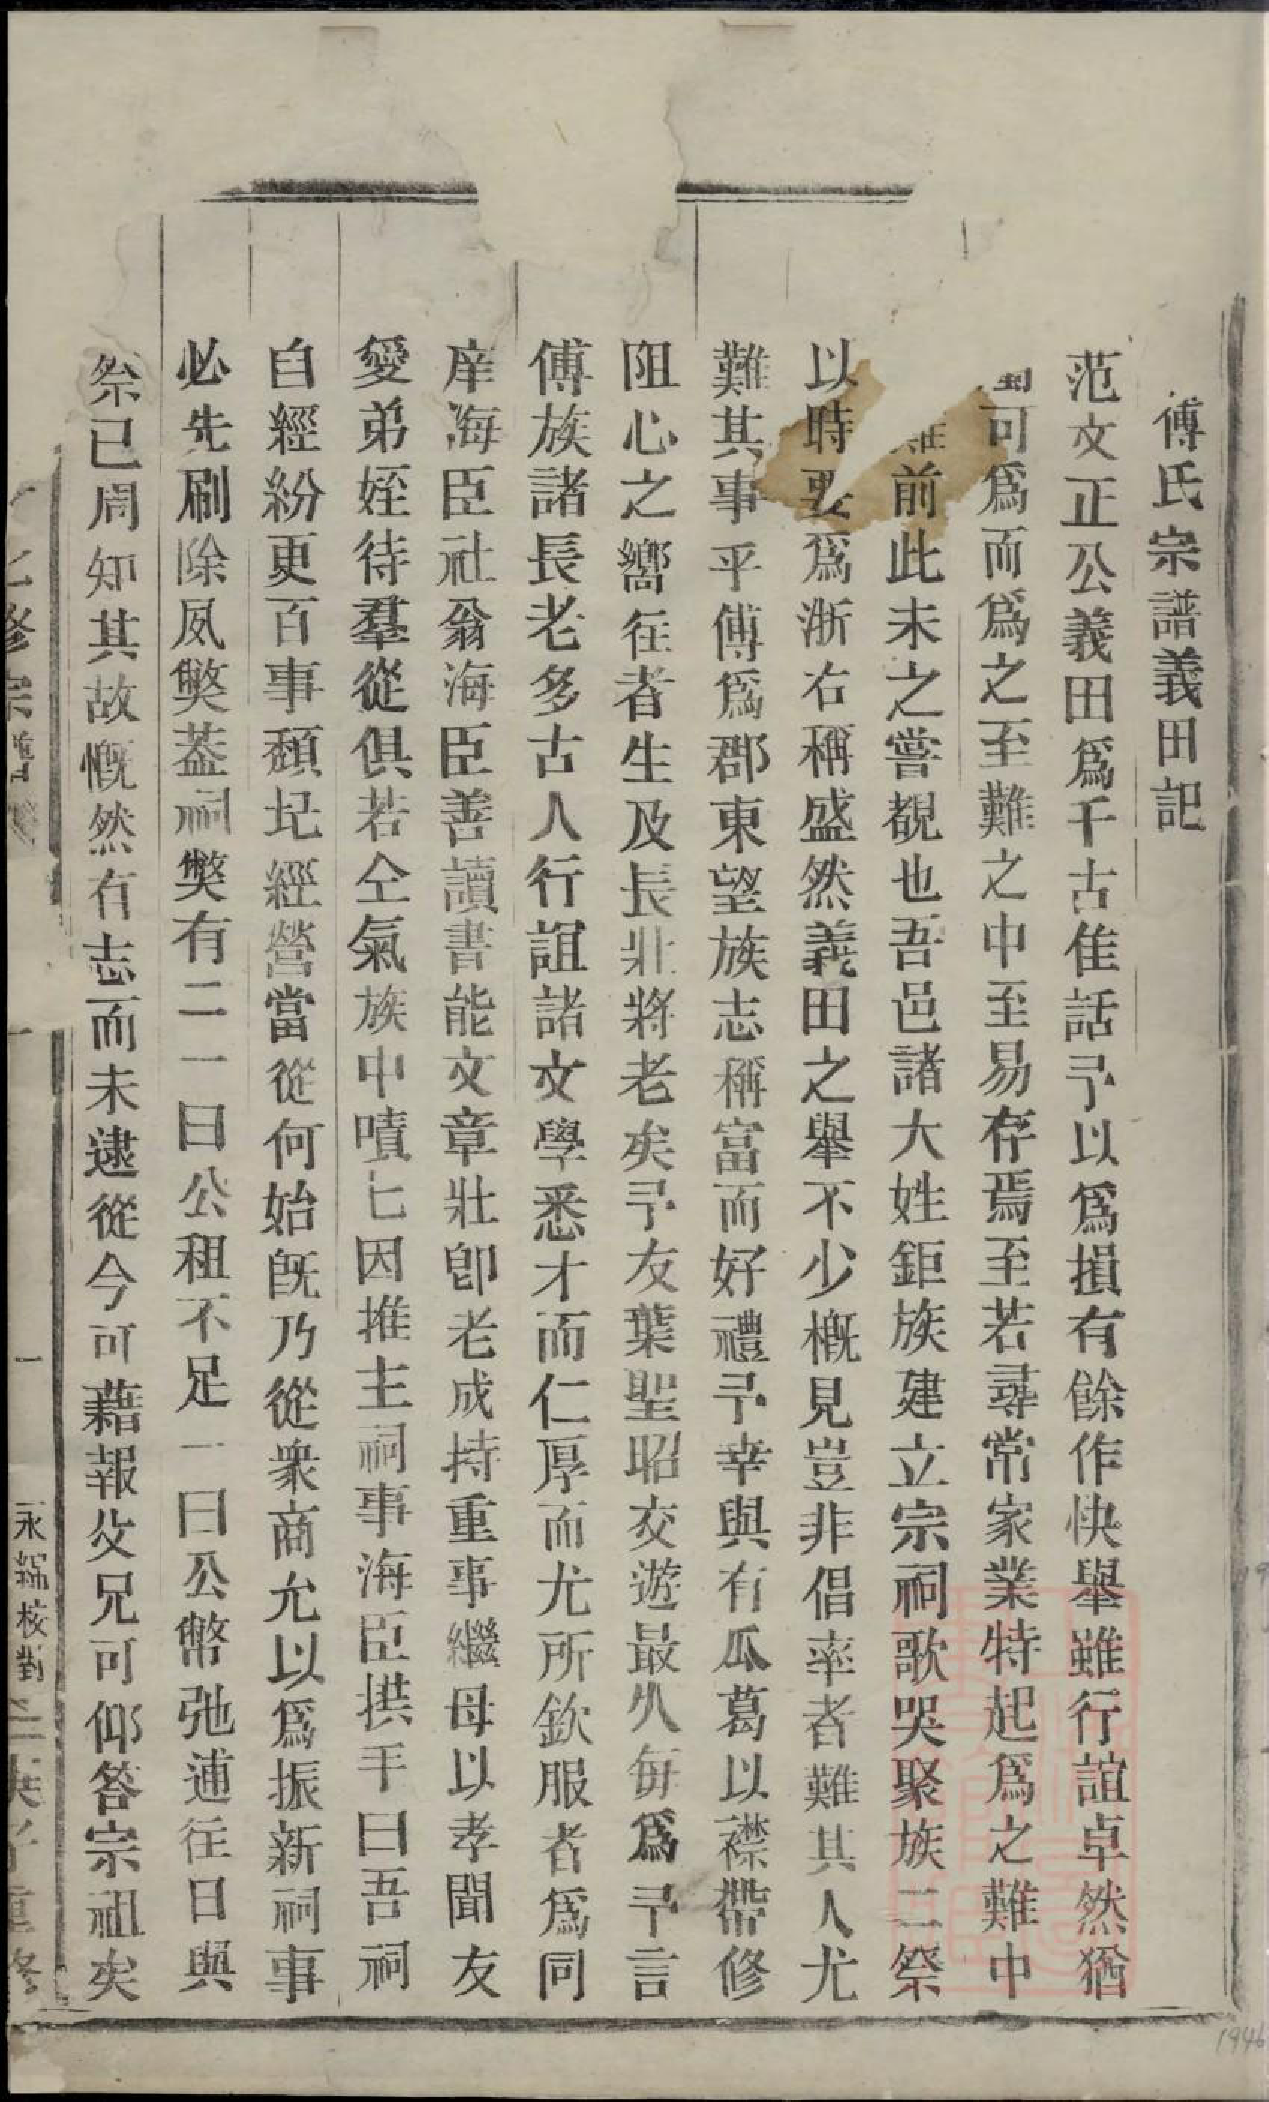 傅氏宗譜義田記
范文正公義田爲千古佳話予以爲損有餘作快舉雖行誼卓然猶
可爲而爲之至難之中至易存焉至若尋常家業特起爲之難中
難前此未之嘗覩也吾邑諸大姓鉅族建立宗祠歌哭聚族二祭
以時要爲浙右稱盛然義田之舉不少槪見豈非倡率者難其人尤
難其事乎傅爲郡東望族志稱富而好禮予幸與有瓜葛以襟帶修
阻心之嚮往者生及長壯將老矣予友葉聖昭交遊最久每爲予言
傅族諸長老多古人行誼諸文學悉才而仁厚而尤所欽服者爲同
庠海臣社翁海臣善讀書能文章壯卽老成持重事繼母以孝聞友
愛弟姪待羣從俱若仝氣族中嘖匕因推主祠事海臣拱手曰吾祠
自經紛更百事頽圮經營當從何始旣乃從衆商允以爲振新祠事
必先刷除夙獘葢祠獘有二一曰公租不足一曰公幣弛逋往日與
祭已周知其故慨然有志而未逮從今可藉報父兄可仰答宗祖矣
修宗譜
一
永綿核對
重修
1946